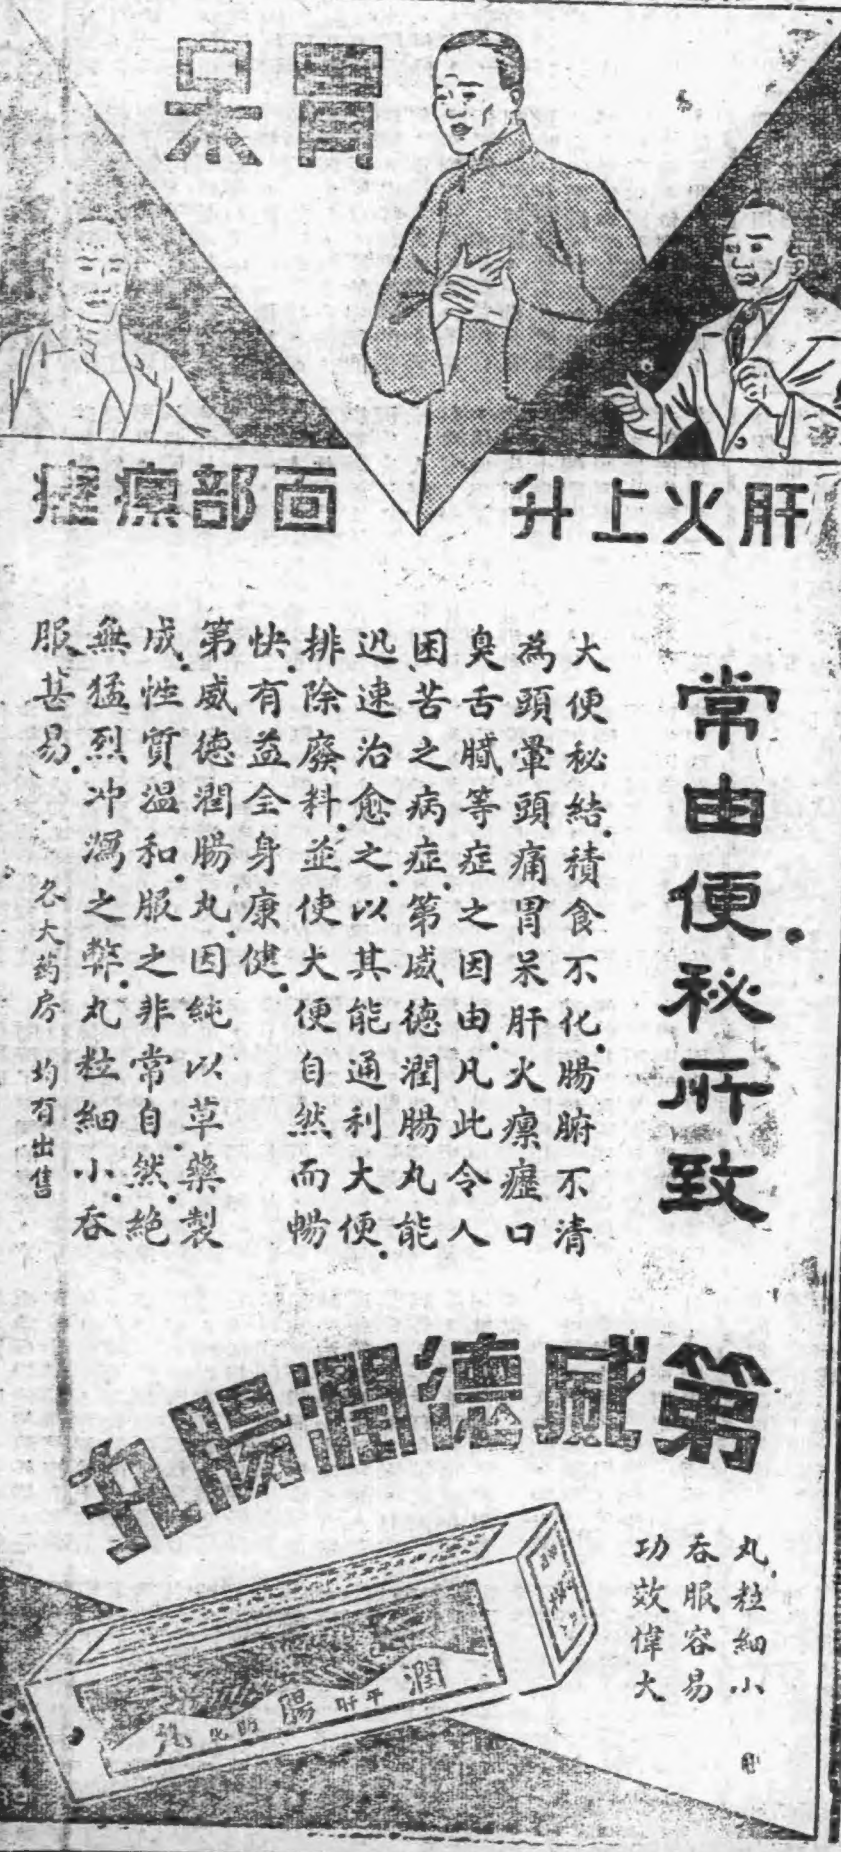 胃呆
肝火上升
面部瘰癧
常由便秘所致
大便秘結.積食不化.腸腑不清
為頭暈頭痛胃呆肝火瘰癧口
臭舌膩等症之因由.凡此令人
困苦之病症.第威德潤腸丸能
迅速治愈之.以其能通利大便.
排除廢料.並使大便自然而暢
快.有益全身康健.
第威德潤腸丸.因純以草藥製
成.性質溫和.服之非常自然.絕
無猛烈冲瀉之弊.丸粒細小.吞
服甚易.
各大药房 均有出售
第威德潤腸丸
丸粒細小
吞服容易
功效偉大
潤
平肝
腸